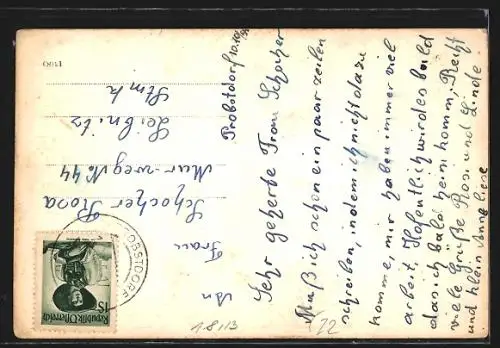 Probstdorf
Sehr geherte Frau Schocher
Muß ich schon ein paar zeilen
schreiben, indem ich nicht dazu
komme, mir haben immer viel
arbeit. Hofentlich wird es bald
das ich bald heim komm, Recht
viele Grüße Rosi und Linde.
und klein Anneliese
An
Frau
Schocher Rosa
Murweg № 44
Leibnitz
Stmk
PROBSTDORF
Republik Österreich
1S
1.8/13
12